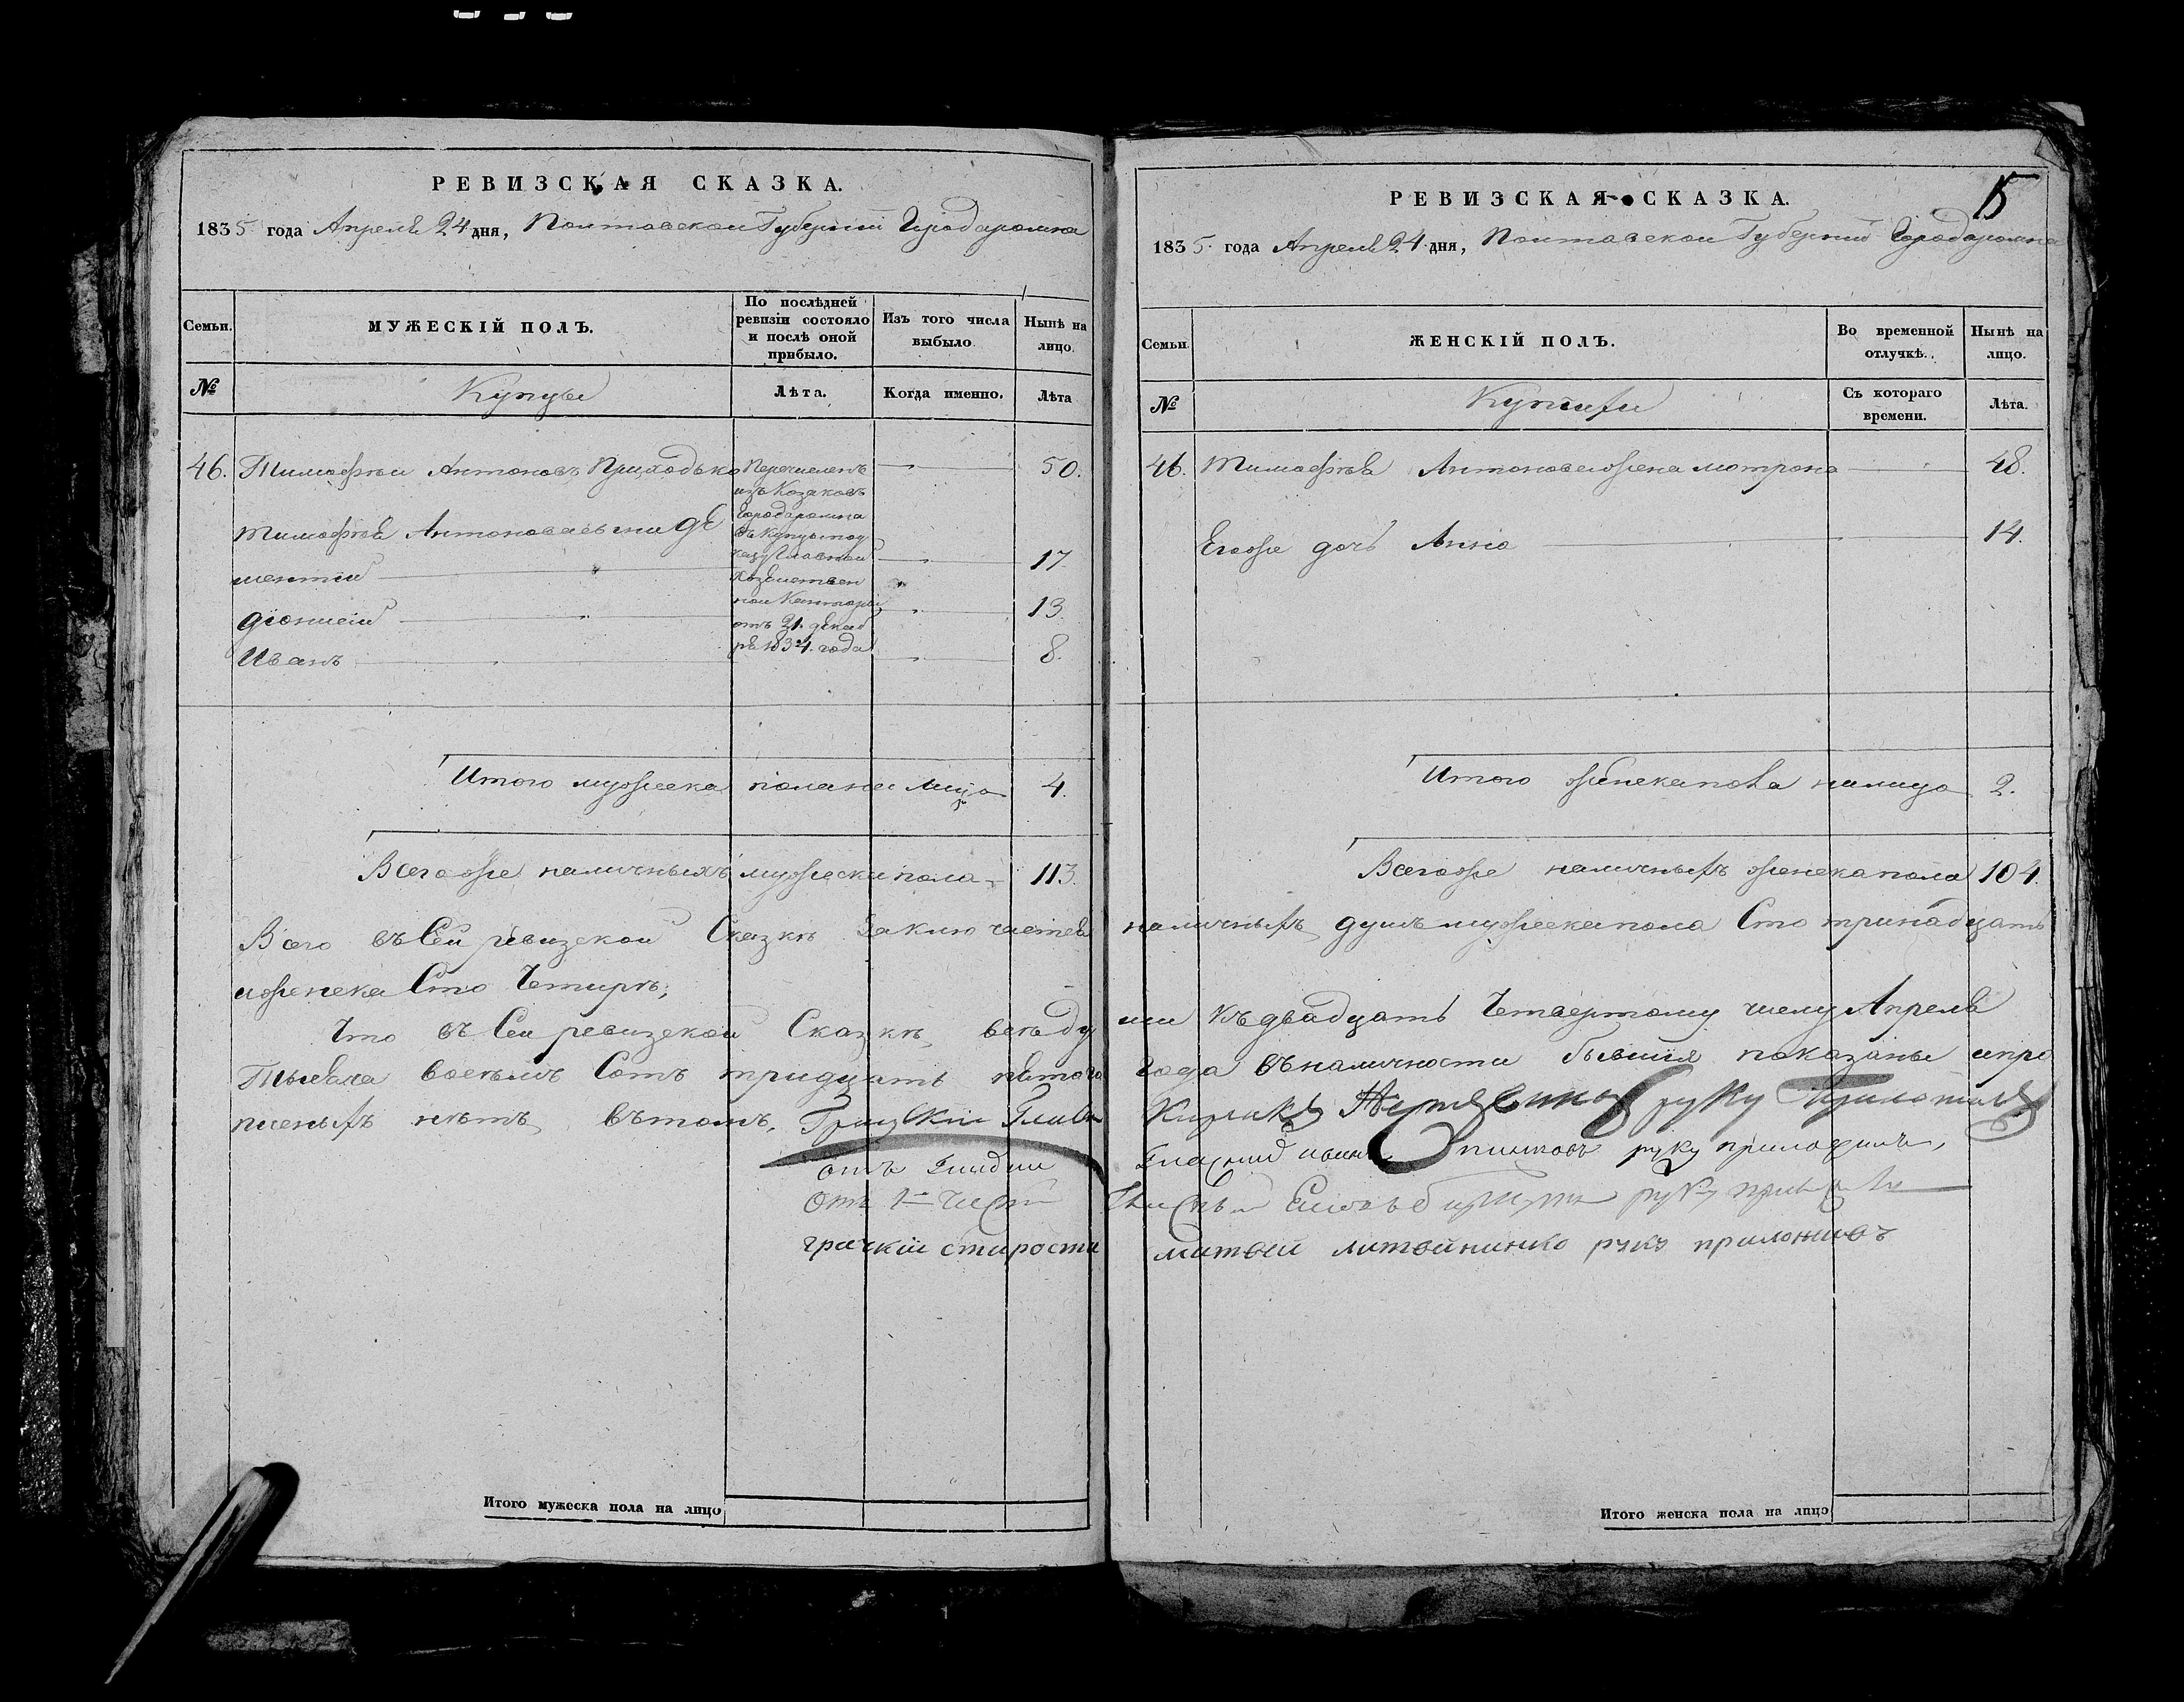 РЕВИЗСКАЯ СКАЗКА.
1835 года Апреля 24 дня, Полтавской Губернии Города Ромна
Семьи.
МУЖЕСКІЙ ПОЛЪ.
По послѣдней ревизіи состояло и послѣ оной прибыло.
Изъ того числа выбыло
Нынѣ на лицо.
№
Купцы
Лѣта.
Когда именно.
Лѣта
46. Тимофѣй Антоновъ Приходько
50.
Перечисленъ
изъ Козаковъ
Города Ромна
въ Купцы по у
казу Главной
Хозяйствен
ной Канторы
отъ 21. декаб
ря 1834. года
Тимофѣя Антонова сыни Де
ментий 17.
Дионисий 13.
Иванъ 8.
Итого мужеска пола на лицо 4.
Всегоже наличныхъ мужеска пола 113.
Итого мужеска пола на лицо
РЕВИЗСКАЯ СКАЗКА.
15
1835. года Апреля 24. дня, Полтавской Губернии Города Ромна
Семьи.
ЖЕНСКІЙ ПОЛЪ.
Во временной отлучкѣ.
Нынѣ на лицо.
№
Съ котораго времени.
Лѣта.
46. Тимофѣя Антонова жена Мотрона 48.
Егоже дочь Анна 14.
Итого женска пола налицо 2.
Всегоже наличныхъ женска пола 104.
Всего въ Сей ревизской Сказкѣ Заключается наличныхъ душъ мужеска пола Сто тринадцать
и женска Сто Четирѣ;
Что въ Сей ревизской Сказкѣ всѣ ду ши къ двадцать Четвертому числу Апреля
Тысяча восемь Сотъ тридцать пятого года въ наличности бывшия показаны и про
писныхъ нѣтъ въ томъ,
руку Приложилъ
руку приложилъ,
Отъ 1й Части
старости Матвей Литвиненко руку приложивъ
Итого женска пола на лицо